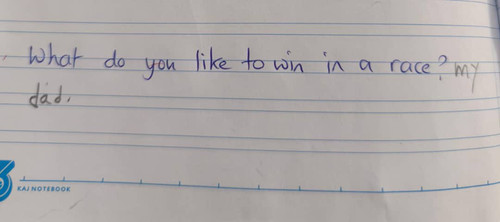 What do you like to win in a race? my
dad.
KAJ NOTEBOOK